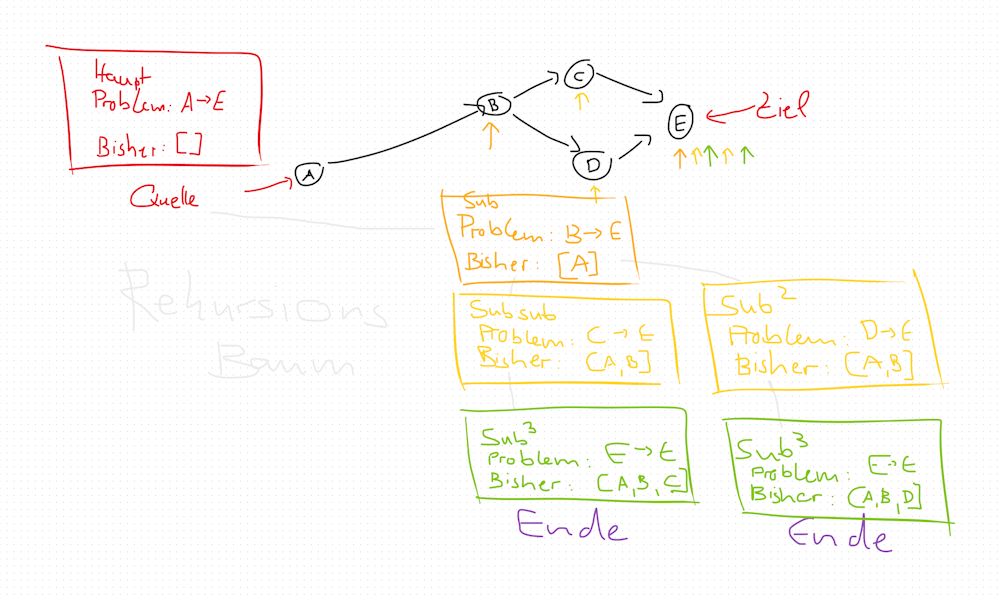 Haupt
Problem: A→E
Bisher: []
Quelle
A
B
C
D
E
Ziel
Sub
Problem: B→E
Bisher: [A]
Rekursions
Baum
Subsub
Problem: C→E
Bisher: [A,B]
Sub²
Problem: D→E
Bisher: [A,B]
Sub³
Problem: E→E
Bisher: [A,B,C]
Ende
Sub³
Problem: E→E
Bisher: [A,B,D]
Ende